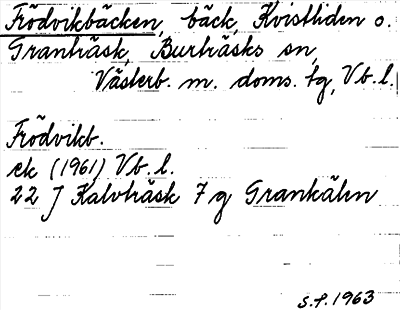 Frödvikbäcken, bäck, Kvistliden o.
Granträsk, Burträsks sn,
Västerb. m. doms. tg, Vb. l.
Frödvikb.
ek (1961) Vb. l.
22 J Kalvträsk 7 g Grankälen
S.f. 1963